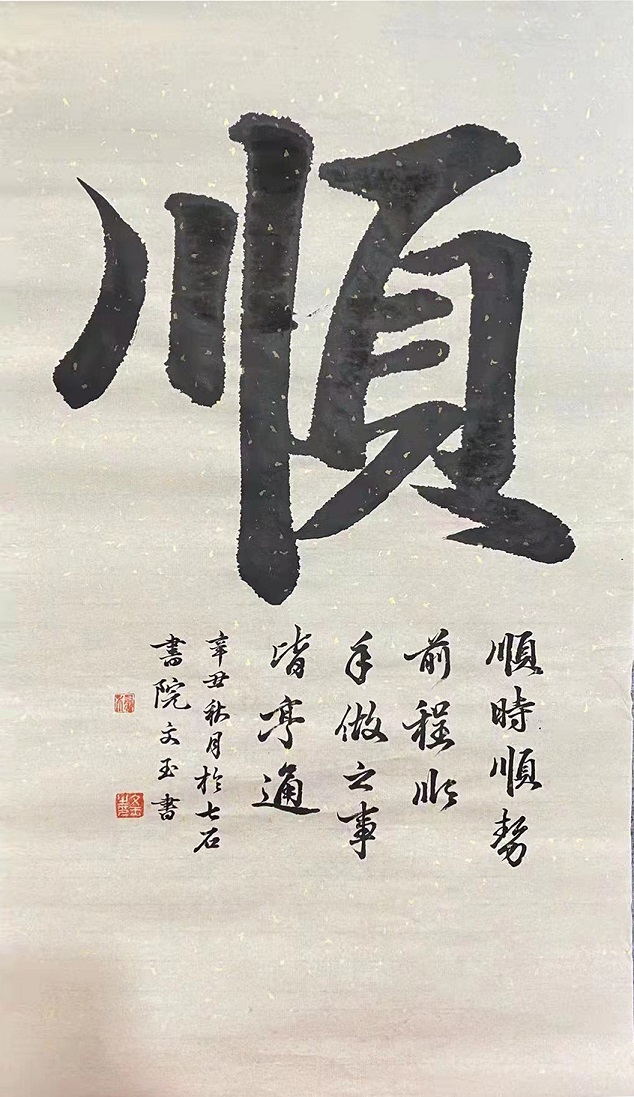 順
順時順勢
前程順
手做之事
皆亨通
辛丑秋月於七石
書院文玉書